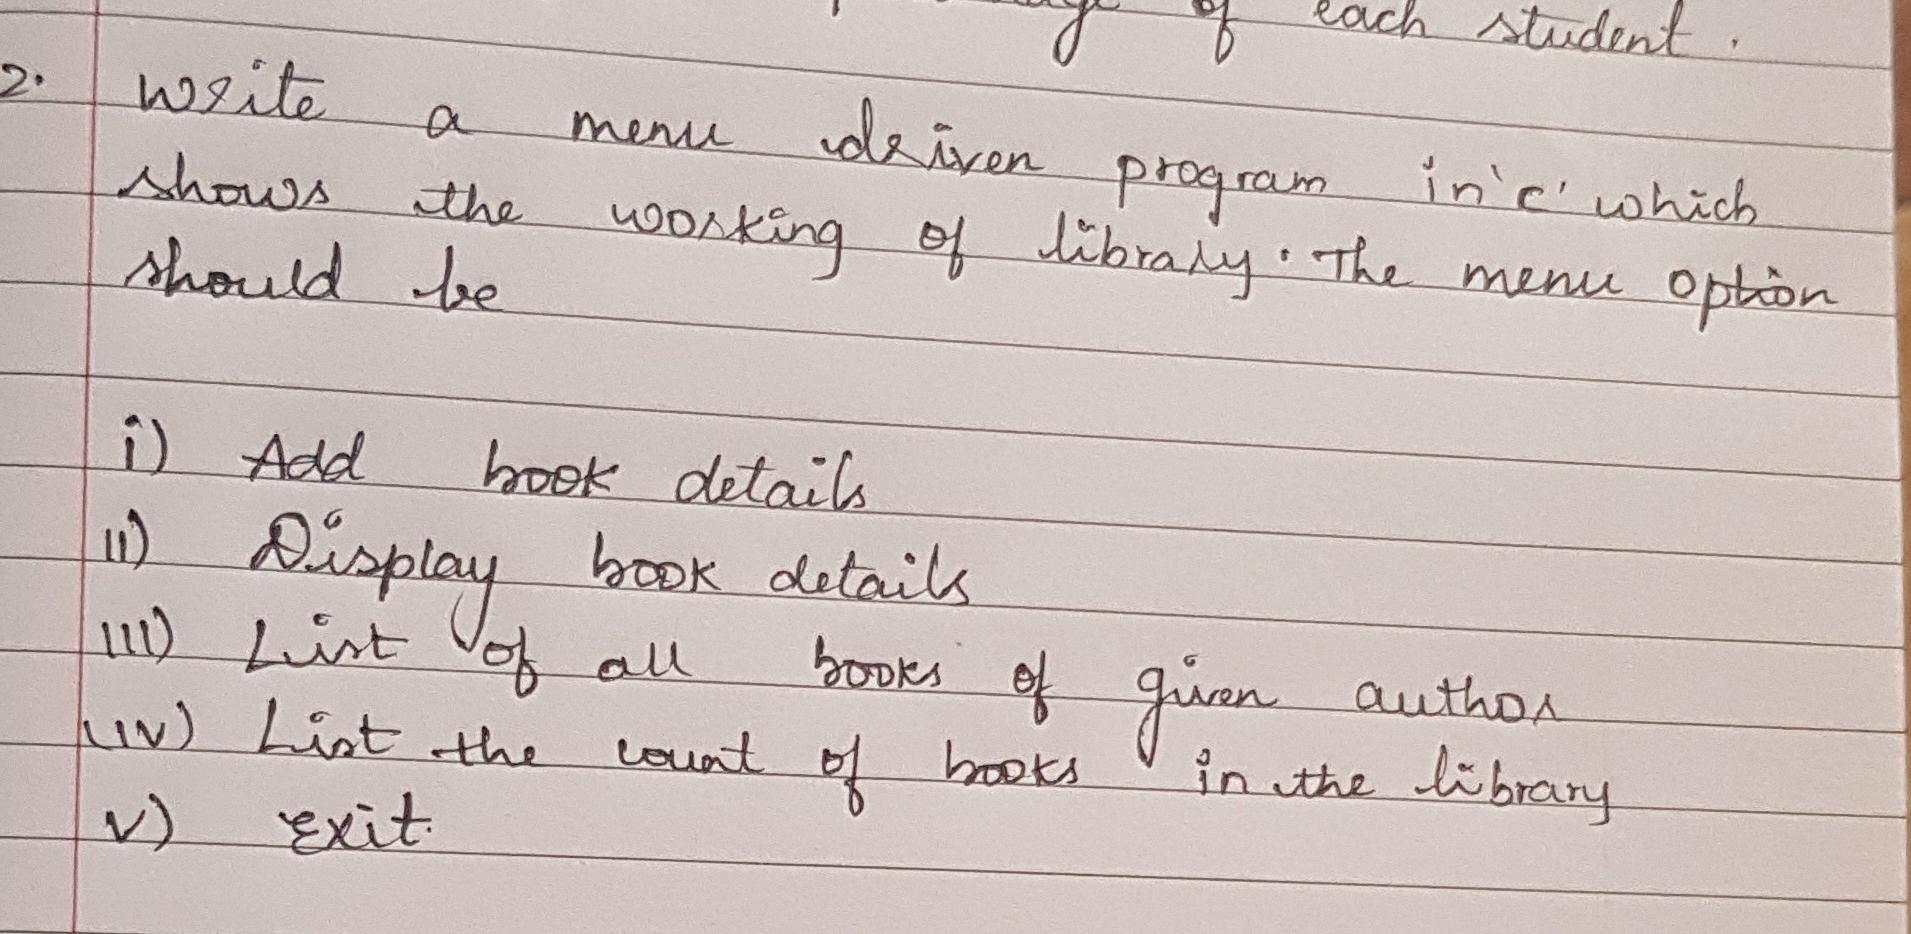 of each student.
2. write a menu driven program in 'c' which
shows the working of library. The menu option
should be
i) Add book details
ii) Display book details
iii) List of all books of given author
iv) List the count of books in the library
v) Exit.